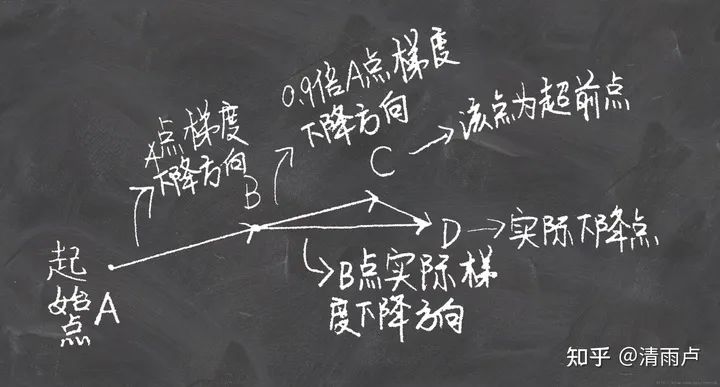 0.9倍A点梯度
下降方向
A点梯度
下降方向
C
该点为超前点
B
D
实际下降点
起
始
点
A
B点实际梯
度下降方向
知乎 @清雨卢